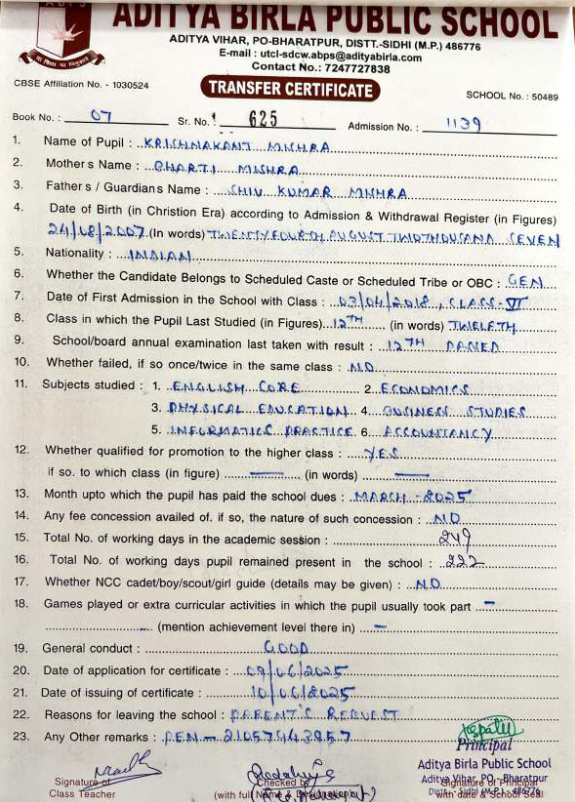 ADITYA BIRLA PUBLIC SCHOOL
ADITYA VIHAR, PO-BHARATPUR, DISTT.-SIDHI (M.P.) 486776
E-mail : utcl-sdcw.abps@adityabirla.com
Contact No.: 7247727838
CBSE Affiliation No. - 1030524
TRANSFER CERTIFICATE
SCHOOL No. : 50489
Book No. : 07 Sr. No. : 625 Admission No. : 1139
1. Name of Pupil : KRISHNAKANT MISHRA
2. Mother's Name : BHARTI MISHRA
3. Father s / Guardian s Name : SHIV KUMAR MISHRA
4. Date of Birth (in Christion Era) according to Admission & Withdrawal Register (in Figures)
24/08/2007 (In words) TWENTY FOURTH AUGUST TWO THOUSAND SEVEN
5. Nationality : INDIAN
6. Whether the Candidate Belongs to Scheduled Caste or Scheduled Tribe or OBC : GEN
7. Date of First Admission in the School with Class : 03/04/2018, CLASS-VI
8. Class in which the Pupil Last Studied (in Figures) 12TH (in words) TWELFTH
9. School/board annual examination last taken with result : 12TH PASSED
10. Whether failed, if so once/twice in the same class : NO
11. Subjects studied : 1. ENGLISH CORE 2. ECONOMICS
3. PHYSICAL EDUCATION 4. BUSINESS STUDIES
5. INFORMATICS PRACTICE 6. ACCOUNTANCY
12. Whether qualified for promotion to the higher class : YES
if so. to which class (in figure) — (in words) —
13. Month upto which the pupil has paid the school dues : MARCH - 2025
14. Any fee concession availed of. if so, the nature of such concession : NO
15. Total No. of working days in the academic session : 249
16. Total No. of working days pupil remained present in the school : 222
17. Whether NCC cadet/boy/scout/girl guide (details may be given) : NO
18. Games played or extra curricular activities in which the pupil usually took part –
(mention achievement level there in) –
19. General conduct : GOOD
20. Date of application for certificate : 09/06/2025
21. Date of issuing of certificate : 10/06/2025
22. Reasons for leaving the school : PARENT'S REQUEST
23. Any Other remarks : PEN - 21057943957
Principal
Aditya Birla Public School
Aditya Vihar, PO - Bharatpur
Distt.- Sidhi (M.P.), 486776
Signature of
Class Teacher
Checked by
(with full Name &
Signature of Principal
with date & School Seal